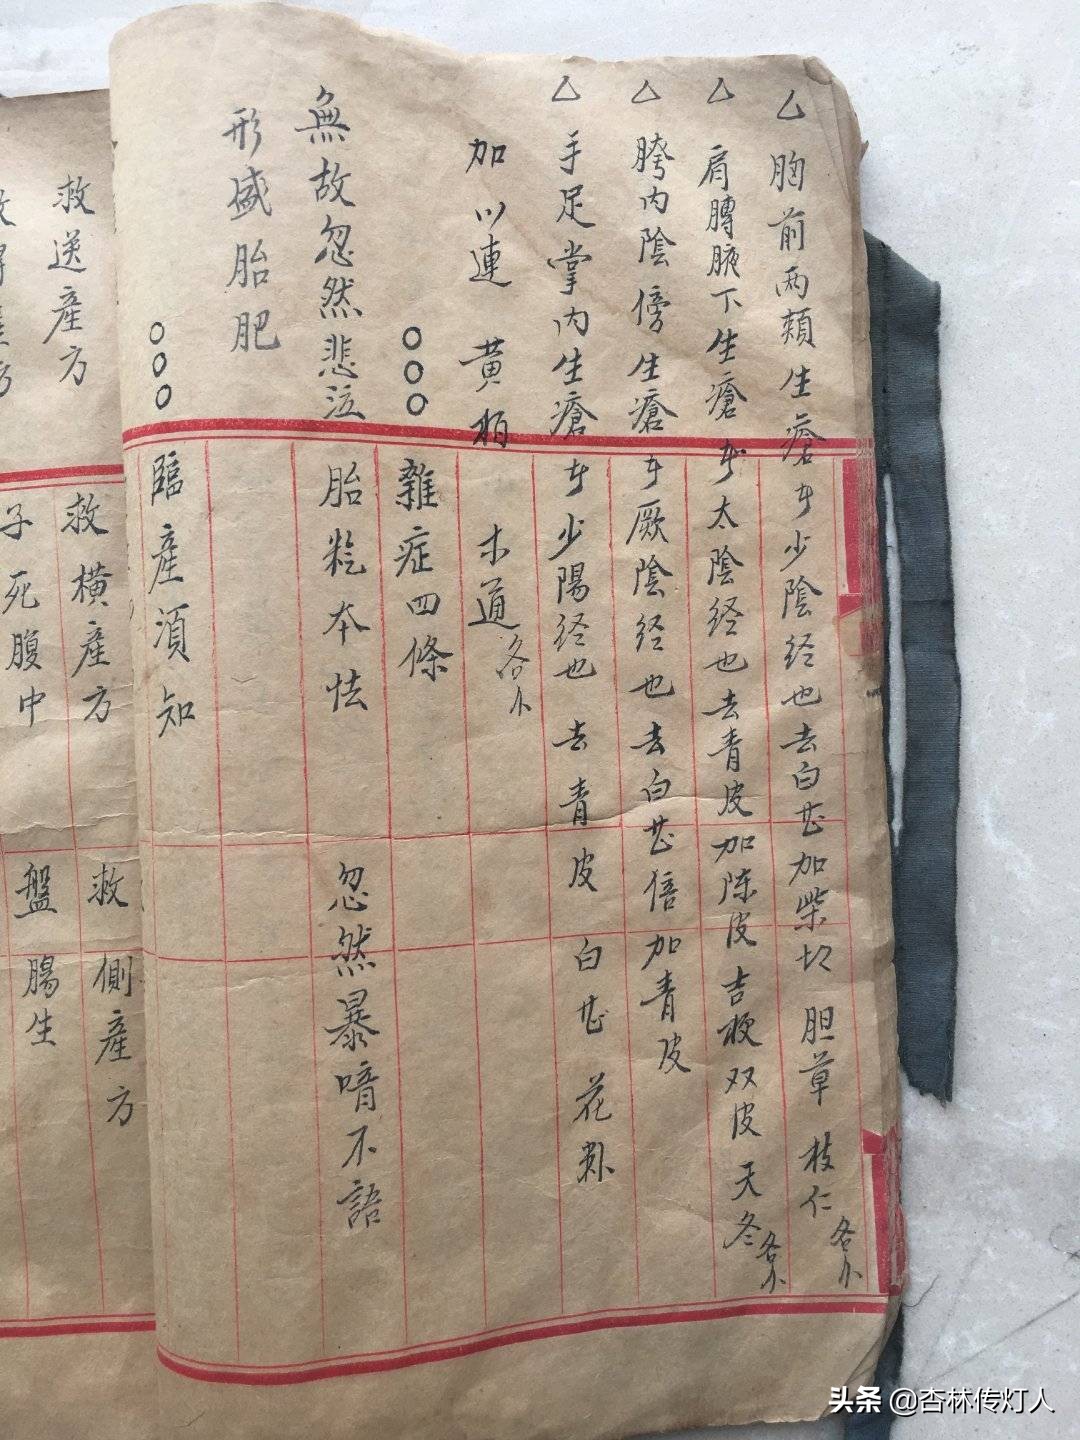 △胸前兩頰生瘡 少陰经也去白芷加柴 胆草 枝仁各
△肩膊腋下生瘡 太陰经也去青皮加陈皮吉梗双皮天冬各
△胯内陰傍生瘡 厥陰经也去白芷倍加青皮
△手足掌内生瘡 少陽经也去青皮 白芷 花
加川連 黄栢 木通各
○○○雜症四條
無故忽然悲泣 胎 本怯 忽然暴喑不語
形盛胎肥
○○○臨產須知
救送產方 救橫產方 救側產方
子死腹中 盤腸生
头条 @杏林传灯人